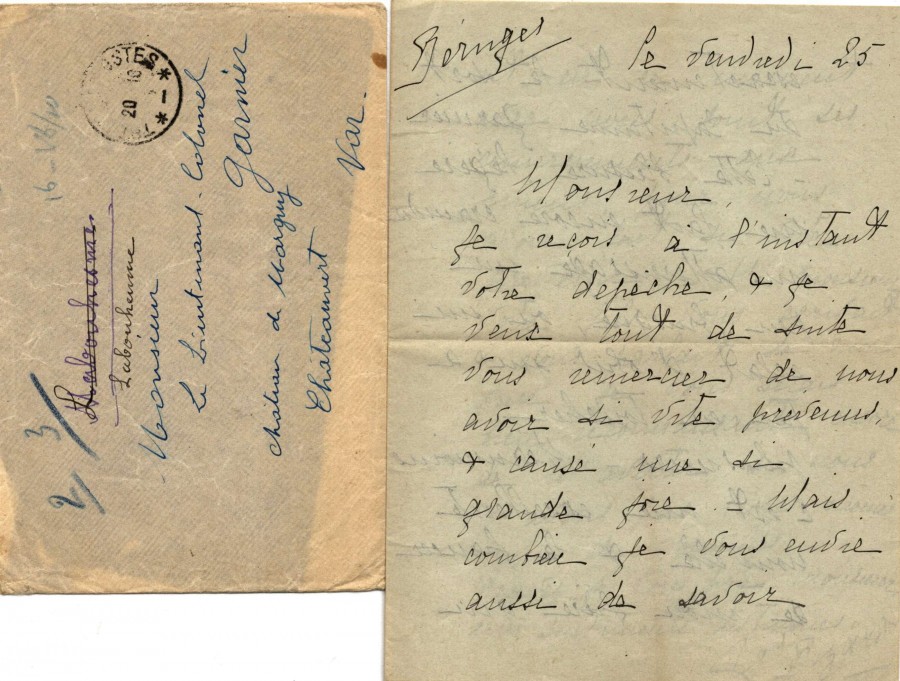 POSTES
20 10
16 - 18/10
Labonhenne
Monsieur
Le Lieutenant-Colonel
Garnier
château de Marguy
Chateauvert
Var.
2/3/
Béruges
le vendredi 25
Monsieur,
je reçois à l'instant
votre depeche, & je
veux tout de suite
vous remercier de nous
avoir si vite prévenus,
& causé une si
grande joie - Mais
combien je vous envie
aussi de savoir